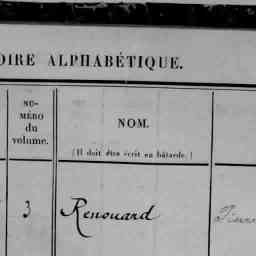 OIRE ALPHABÉTIQUE.
NU-
MÉRO
du
volume.
NOM.
(Il doit être écrit en bâtarde.)
3 Renouard